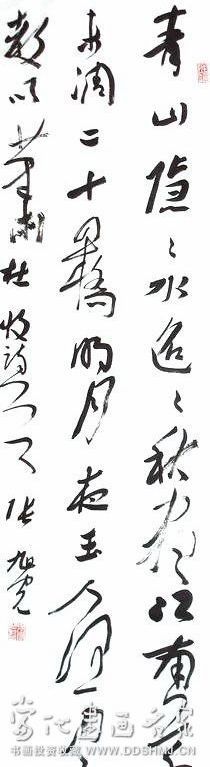 青山隐〻水迢〻秋尽江南草
未凋二十四橋明月夜玉人何处
教吹箫杜牧诗 张旭光
当代书画名家
书画投资收藏 WWW.DDSHMJ.CN